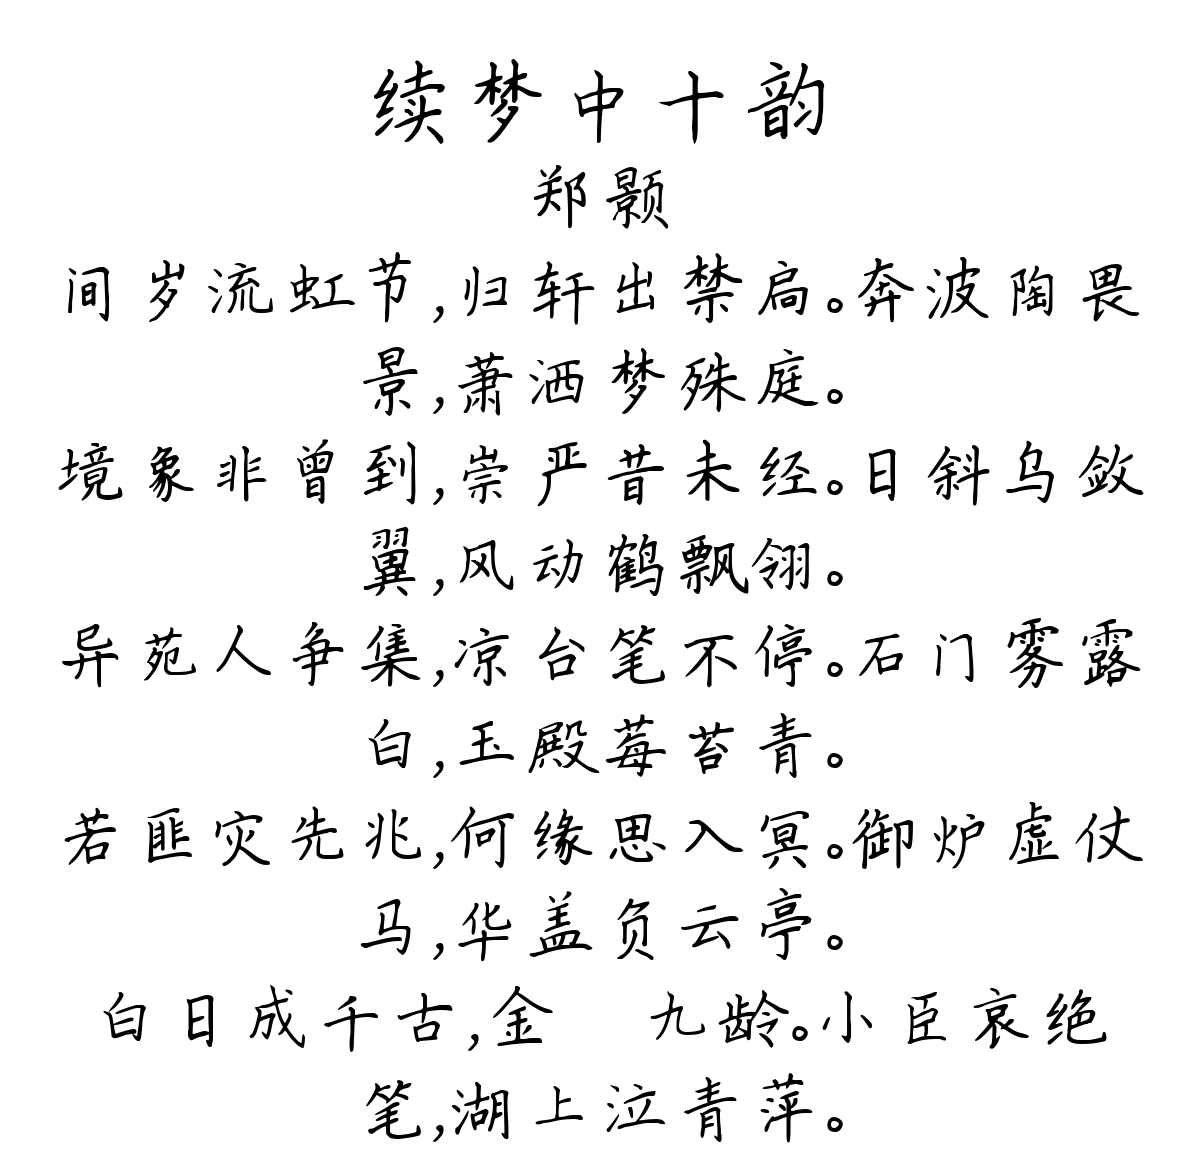 续梦中十韵
郑颢
间岁流虹节,归轩出禁扃。奔波陶畏
景,萧洒梦殊庭。
境象非曾到,崇严昔未经。日斜乌敛
翼,风动鹤飘翎。
异苑人争集,凉台笔不停。石门雾露
白,玉殿莓苔青。
若匪灾先兆,何缘思入冥。御炉虚仗
马,华盖负云亭。
白日成千古,金 九龄。小臣哀绝
笔,湖上泣青萍。